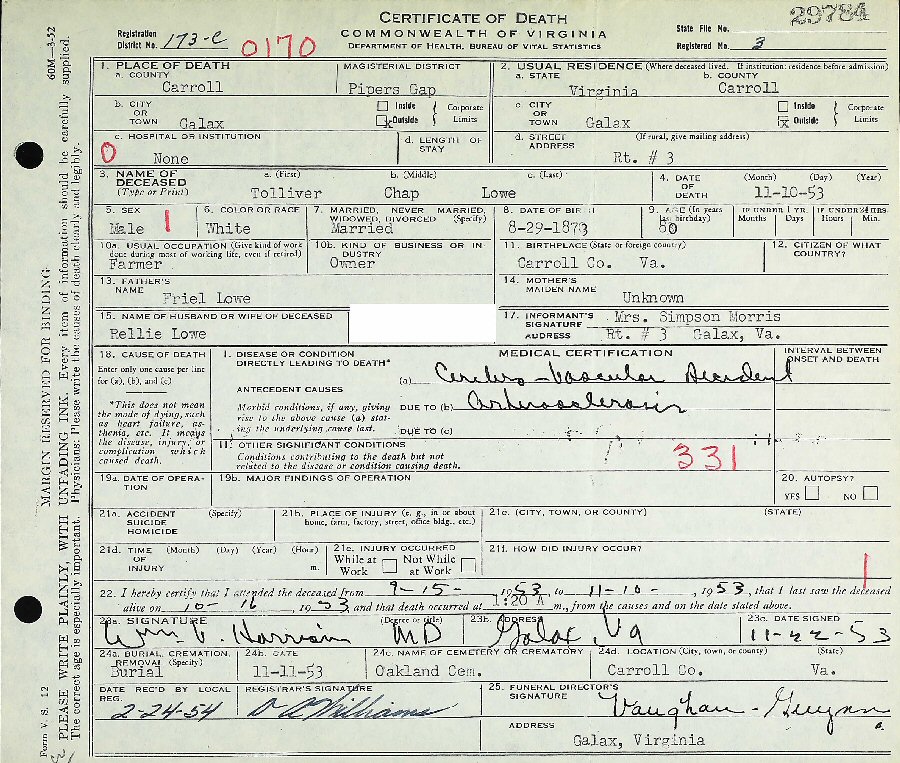 CERTIFICATE OF DEATH
COMMONWEALTH OF VIRGINIA
DEPARTMENT OF HEALTH, BUREAU OF VITAL STATISTICS
Registration District No. 173-C 0170
State File No. 29784
Registered No. 3
60M—3-52
1. PLACE OF DEATH
a. COUNTY
Carroll
MAGISTERIAL DISTRICT
Pipers Gap
2. USUAL RESIDENCE (Where deceased lived. If institution: residence before admission)
a. STATE
Virginia
b. COUNTY
Carroll
b. CITY OR TOWN Galax
Inside
x Outside
Corporate Limits
c. CITY OR TOWN Galax
Inside
x Outside
Corporate Limits
c. HOSPITAL OR INSTITUTION
0 None
d. LENGTH OF STAY
d. STREET ADDRESS (If rural, give mailing address)
Rt. # 3
3. NAME OF DECEASED (Type or Print)
a. (First) b. (Middle) c. (Last)
Tolliver Chap Lowe
4. DATE OF DEATH (Month) (Day) (Year)
11-10-53
5. SEX
Male 1
6. COLOR OR RACE
White
7. MARRIED, NEVER MARRIED, WIDOWED, DIVORCED (Specify)
Married
8. DATE OF BIRTH
8-29-1873
9. AGE (In years last birthday)
80
IF UNDER 1 YR. Months Days
IF UNDER 24 HRS. Hours Min.
10a. USUAL OCCUPATION (Give kind of work done during most of working life, even if retired)
Farmer
10b. KIND OF BUSINESS OR INDUSTRY
Owner
11. BIRTHPLACE (State or foreign country)
Carroll Co. Va.
12. CITIZEN OF WHAT COUNTRY?
13. FATHER'S NAME
Friel Lowe
14. MOTHER'S MAIDEN NAME
Unknown
15. NAME OF HUSBAND OR WIFE OF DECEASED
Rellie Lowe
17. INFORMANT'S SIGNATURE Mrs. Simpson Morris
ADDRESS Rt. # 3 Galax, Va.
18. CAUSE OF DEATH
Enter only one cause per line for (a), (b), and (c)
*This does not mean the mode of dying, such as heart failure, asthenia, etc. It means the disease, injury, or complication which caused death.
MEDICAL CERTIFICATION
INTERVAL BETWEEN ONSET AND DEATH
I. DISEASE OR CONDITION DIRECTLY LEADING TO DEATH*
(a) Cerebro-Vascular Accident
ANTECEDENT CAUSES
Morbid conditions, if any, giving rise to the above cause (a) stating the underlying cause last.
DUE TO (b) Arteriosclerosis
DUE TO (c)
II. OTHER SIGNIFICANT CONDITIONS
Conditions contributing to the death but not related to the disease or condition causing death.
331
19a. DATE OF OPERATION
19b. MAJOR FINDINGS OF OPERATION
20. AUTOPSY?
YES NO
21a. ACCIDENT SUICIDE HOMICIDE (Specify)
21b. PLACE OF INJURY (e. g., in or about home, farm, factory, street, office bldg., etc.)
21c. (CITY, TOWN, OR COUNTY) (STATE)
21d. TIME OF INJURY (Month) (Day) (Year) (Hour) m.
21e. INJURY OCCURRED
While at Work Not While at Work
21f. HOW DID INJURY OCCUR?
1
22. I hereby certify that I attended the deceased from 9-15-, 1953, to 11-10-, 1953, that I last saw the deceased
alive on 10-16, 1953 and that death occurred at 1:20 A m., from the causes and on the date stated above.
23a. SIGNATURE (Degree or title)
Wm. V. Harrison MD
23b. ADDRESS
Galax, Va
23c. DATE SIGNED
11-22-53
24a. BURIAL, CREMATION, REMOVAL (Specify)
Burial
24b. DATE
11-11-53
24c. NAME OF CEMETERY OR CREMATORY
Oakland Cem.
24d. LOCATION (City, town, or county) (State)
Carroll Co. Va.
DATE REC'D BY LOCAL REG.
2-24-54
REGISTRAR'S SIGNATURE
Williams
25. FUNERAL DIRECTOR'S SIGNATURE
Vaughan-Guynn
ADDRESS
Galax, Virginia
Form V. S. 12
MARGIN RESERVED FOR BINDING
PLEASE WRITE PLAINLY, WITH UNFADING INK. Every item of information should be carefully supplied.
The correct age is especially important. Physicians: Please write the causes of death clearly and legibly.